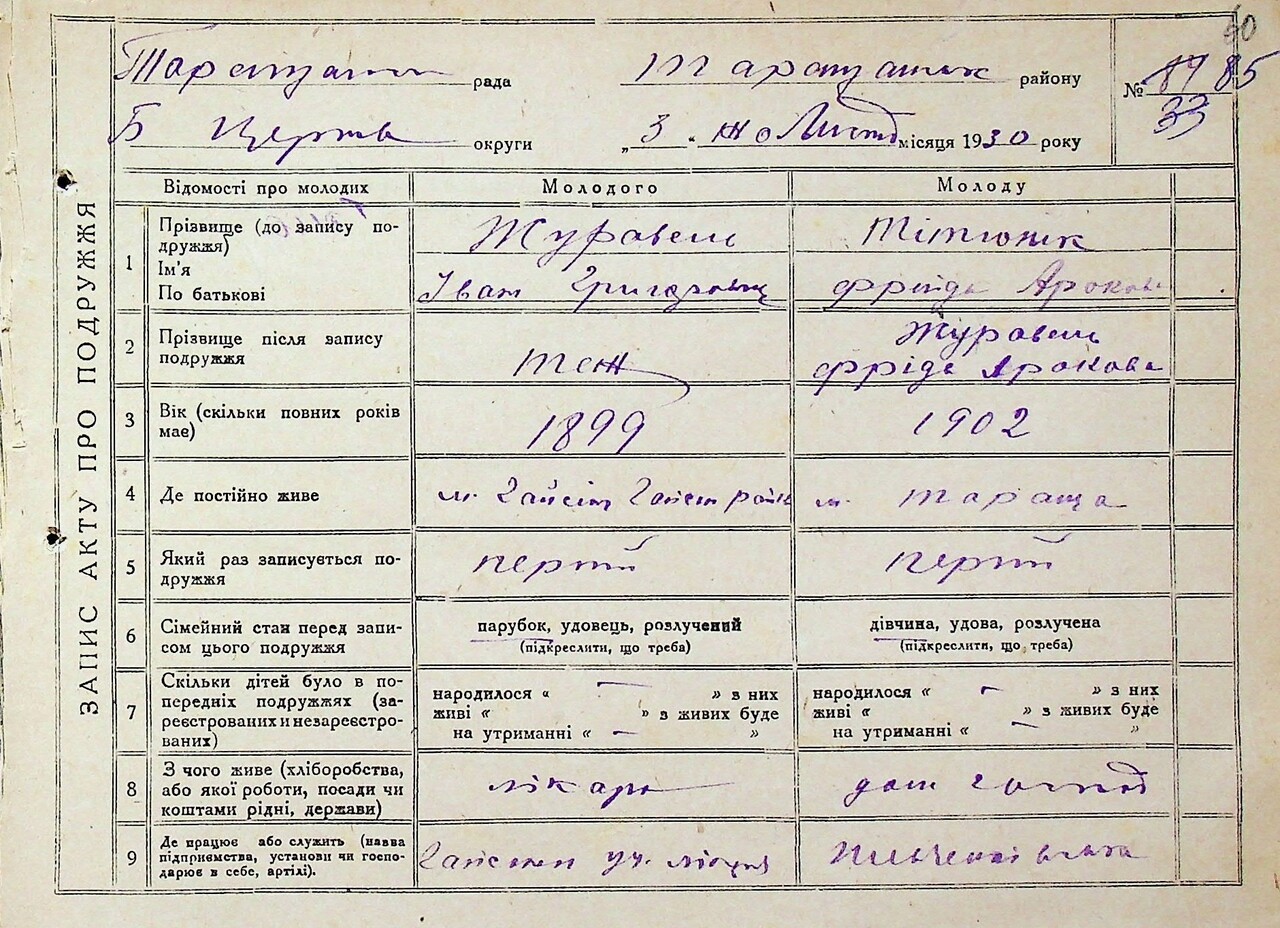 60
Таращанс рада Таращанск району
№ 87 85
33
Б Церкв округи „ 3 “ жо Листд місяця 1930 року
ЗАПИС АКТУ ПРО ПОДРУЖЖЯ
Відомості про молодих Молодого Молоду
1 Прізвище (до запису по-
дружжя)
Журавель
Ім'я
По батькові
Іван Григорович
Фріда Арокова
2 Прізвище після запису
подружжя
теж
Журавель
Фріда Арокова
3 Вік (скільки повних років
має)
1899 1902
4 Де постійно живе м. Гайсін Гайсин район м. Тараща
5 Який раз записується по-
дружжя
перший перший
6 Сімейний стан перед запи-
сом цього подружжя
парубок, удовець, розлучений
(підкреслити, що треба)
дівчина, удова, розлучена
(підкреслити, що треба)
7 Скільки дітей було в по-
передніх подружжях (за-
реєстрованих и незареєстро-
ваних)
народилося « — » з них
живі « » з живих буде
на утриманні « — »
народилося « — » з них
живі « » з живих буде
на утриманні « — »
8 З чого живе (хліборобства,
або якої роботи, посади чи
коштами рідні, держави)
лікарь дом господ
9 Де працює або служить (навва
підприємства, установи чи госпо-
дарює в себе, артілі).